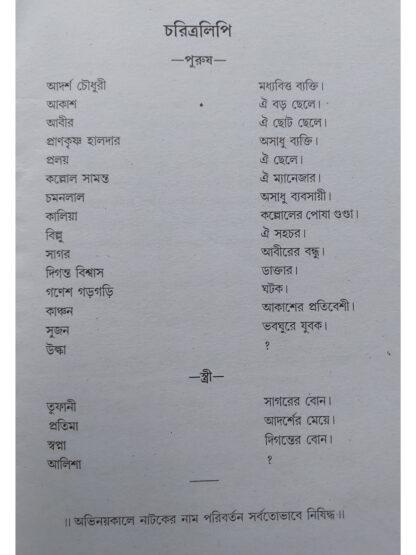 চরিত্রলিপি
—পুরুষ—
আদর্শ চৌধুরী মধ্যবিত্ত ব্যক্তি।
আকাশ ঐ বড় ছেলে।
আবীর ঐ ছোট ছেলে।
প্রাণকৃষ্ণ হালদার অসাধু ব্যক্তি।
প্রলয় ঐ ছেলে।
কল্লোল সামন্ত ঐ ম্যানেজার।
চমনলাল অসাধু ব্যবসায়ী।
কালিয়া কল্লোলের পোষা গুণ্ডা।
বিল্লু ঐ সহচর।
সাগর আবীরের বন্ধু।
দিগন্ত বিশ্বাস ডাক্তার।
গণেশ গড়গড়ি ঘটক।
কাঞ্চন আকাশের প্রতিবেশী।
সুজন ভবঘুরে যুবক।
উল্কা ?
—স্ত্রী—
তুফানী সাগরের বোন।
প্রতিমা আদর্শের মেয়ে।
স্বপ্না দিগন্তের বোন।
আলিশা ?
।। অভিনয়কালে নাটকের নাম পরিবর্তন সর্বতোভাবে নিষিদ্ধ ।।